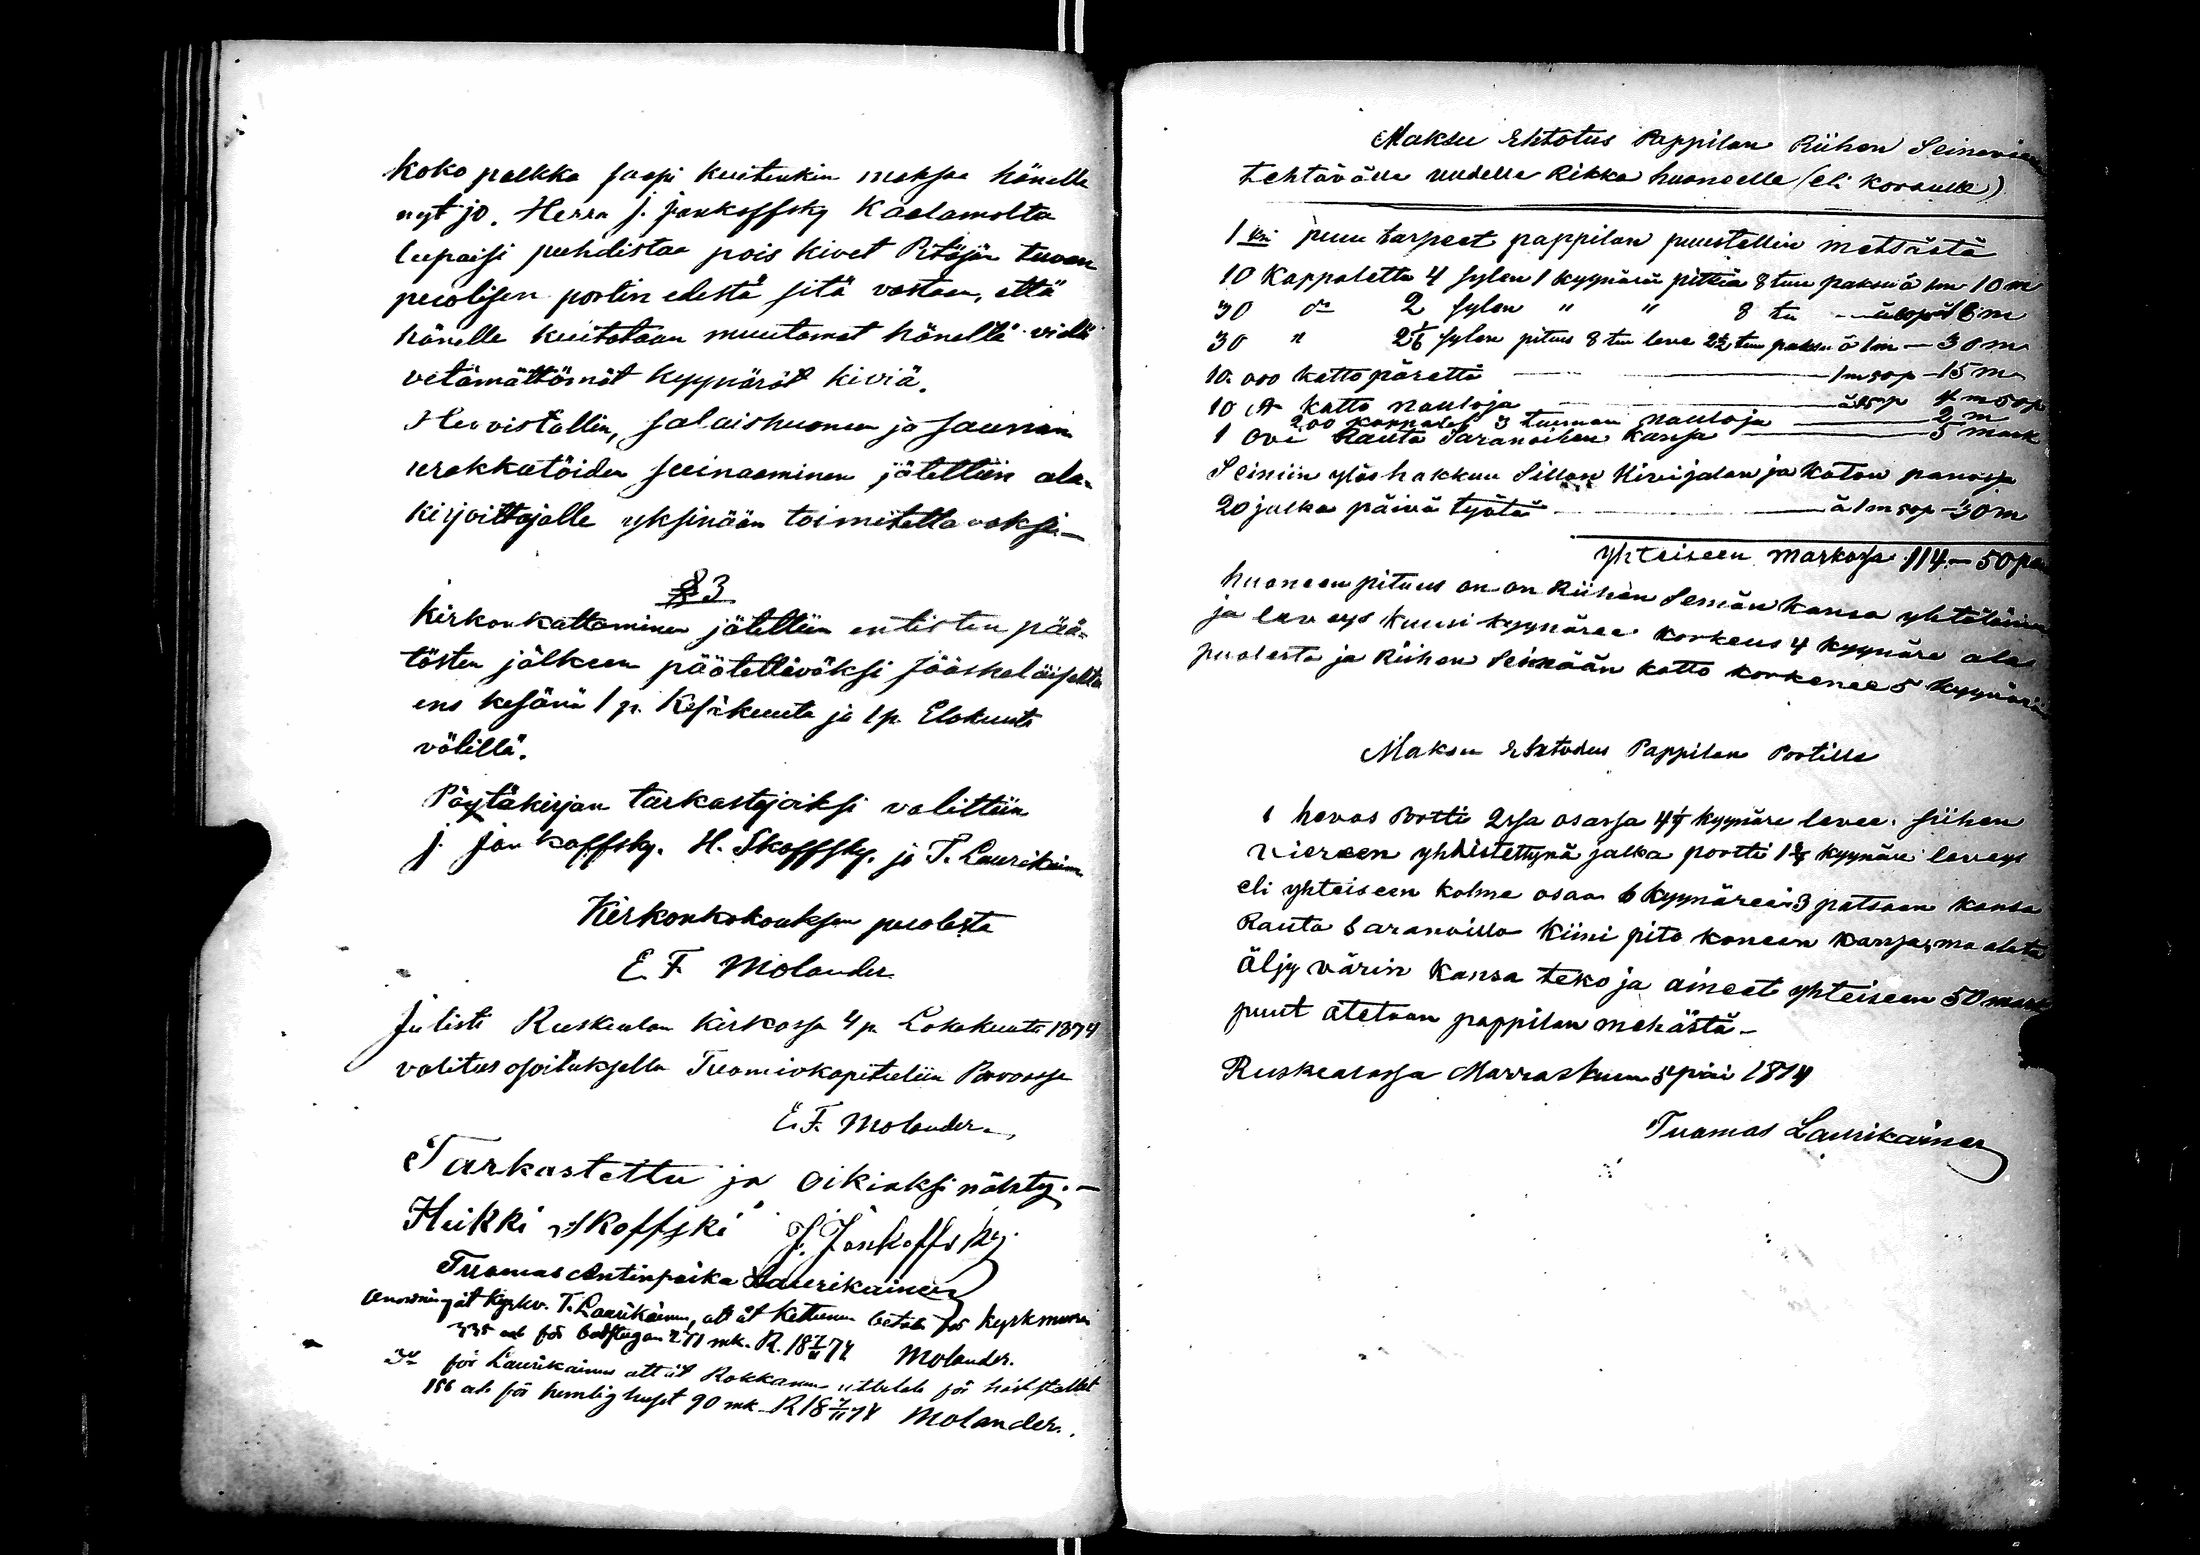 koko palkka saapi kuitenkin maksaa hänelle
nyt jo. Herra J. Jankoffsky Kaalamolta
lupaisi puhdistaa pois kivet Pitäjän tuvan
puolisen portin edestä sitä vastaan, että
hänelle kuitataan muutamat häneltä vielä
vetämättömät kyynäröt kiviä.
Hevoistallin, salaishuoneen ja saunan
urakkatöiden seinaaminen jätettiin ala-
kirjoittajalle yksinään toimitettavaksi. —
§ 3
Kirkonkattaminen jätettiin entisten pää-
tösten jälkeen päätettäväksi Jääskeläiseltä
ens kesänä 1 p. Kesäkuuta ja 1 p. Elokuuta
välillä.
Pöytäkirjan tarkastajaiksi valittiin
J. Jankoffsky. H. Skoffsky. ja T. Laurikain
Kirkonkokouksen puolesta
E. F. Molander
Julisti Ruskealan kirkossa 4 p. Lokakuuta 1874
valitusosoituksella Tuomiokapituliin Porvoossa
E. F. Molander.
Tarkastettu ja oikiaksi nähty. —
Heikki Skoffski J. Jankoffsky
Tuomas Antinpoika Laurikainen
Anvisning åt Kyrkv. T. Laurikainen, att åt Kettunen betala för kyrkmuren
335 och för badstugan 271 mk. R. 18 7/11 74 Molander.
Do för Laurikainen att åt Rokkanen utbetala för häststallet
186 och för hemlighuset 90 mk. R 18 7/11 74 Molander.
Maksu Ehtotus Pappilan Riihen Seinävieen
tehtävälle uudelle Rikka huoneelle (eli korsulle)
1 ksi puu tarpeet pappilan puustellin metsästä
10 Kappaletta 4 sylen 1 kyynärän pitkiä 8 tuu paksuä 1m 10 m
30 do 2 sylen " " 8 tu — 18 m
30 " 2 1/6 sylen pituus 8 tuu leve 2 1/2 tuu paksu á 1m — 30 m
10.000 katto pärettä — 1m 50 p — 15 m
10 ℔ katto nauloja — á 45 p 4 m 50 p
200 kappalet 3 tuuman nauloja — 2 m
1 Ovi Rauta Saranoihen kansa — 5 mark
Seiniin ylöshakkuu Sillan Kivijalan ja Katon panossa
20 jalka päivä työtä — á 1m 50 p — 30 m
Yhteiseen Markassa 114 — 50 pen
huoneen pituus on on Riihen Seinän kansa yhtäläinen
ja leveys kuusi kyynäree korkeus 4 kyynäre ala
puolesta ja Riihen Seinään katto korkenee 5 kyynärä
Maksu Ehtodus Pappilan Portille
1 hevos Portti 2ssa osassa 4 1/4 kyynäre levee. siihen
viereen yhdistettynä jalka portti 1 3/4 kyynäre leveys
eli yhteiseen kolme osaa 6 kyynäreä 3 patsaan kansa
Rauta Saranoilla kiini pito koneen kanssa, maalata
öljy värin kansa teko ja aineet yhteiseen 50 mark
puut otetaan pappilan mehästä —
Ruskealassa Marraskuun 5 päi 1874
Tuomas Laurikainen